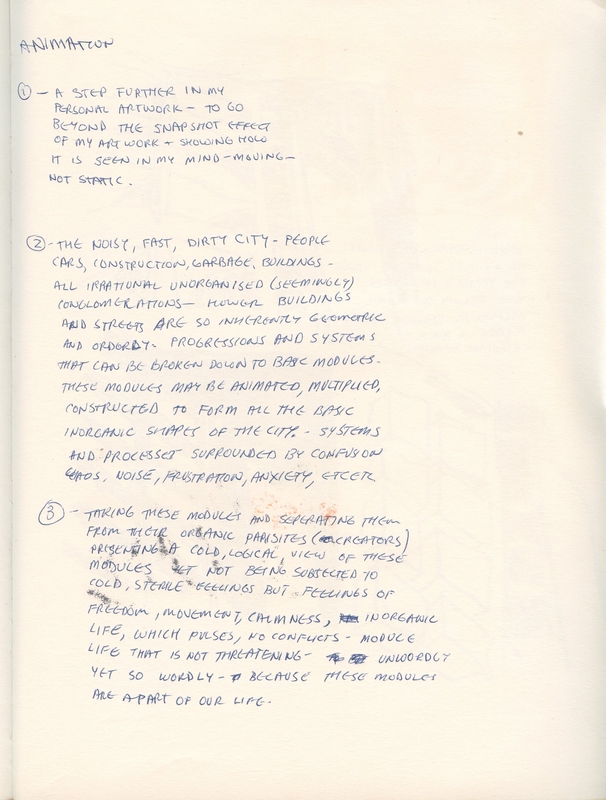 ANIMATION
① - A STEP FURTHER IN MY
PERSONAL ARTWORK - TO GO
BEYOND THE SNAPSHOT EFFECT
OF MY ARTWORK + SHOWING HOW
IT IS SEEN IN MY MIND - MOVING -
NOT STATIC.
② - THE NOISY, FAST, DIRTY CITY - PEOPLE
CARS, CONSTRUCTION, GARBAGE, BUILDINGS -
ALL IRRATIONAL UNORGANISED (SEEMINGLY)
CONGLOMERATIONS - HOWER BUILDINGS
AND STREETS ARE SO INHERENTLY GEOMETRIC
AND ORDERDY - PROGRESSIONS AND SYSTEMS
THAT CAN BE BROKEN DOWN TO BASIC MODULES -
THESE MODULES MAY BE ANIMATED, MULTIPLIED,
CONSTRUCTED TO FORM ALL THE BASIC
INORGANIC SHAPES OF THE CITY. - SYSTEMS
AND PROCESSES SURROUNDED BY CONFUSION
CHAOS, NOISE, FRUSTRATION, ANXIETY, ETCETC
③ - TAKING THESE MODULES AND SEPERATING THEM
FROM THEIR ORGANIC PARISITES (CREATORS)
PRESENTING A COLD, LOGICAL, VIEW OF THESE
MODULES YET NOT BEING SUBJECTED TO
COLD, STERILE FEELINGS BUT FEELINGS OF
FREEDOM, MOVEMENT, CALMNESS, INORGANIC
LIFE, WHICH PULSES, NO CONFLICTS - MODULE
LIFE THAT IS NOT THREATENING - UNWORDLY
YET SO WORDLY - BECAUSE THESE MODULES
ARE A PART OF OUR LIFE.